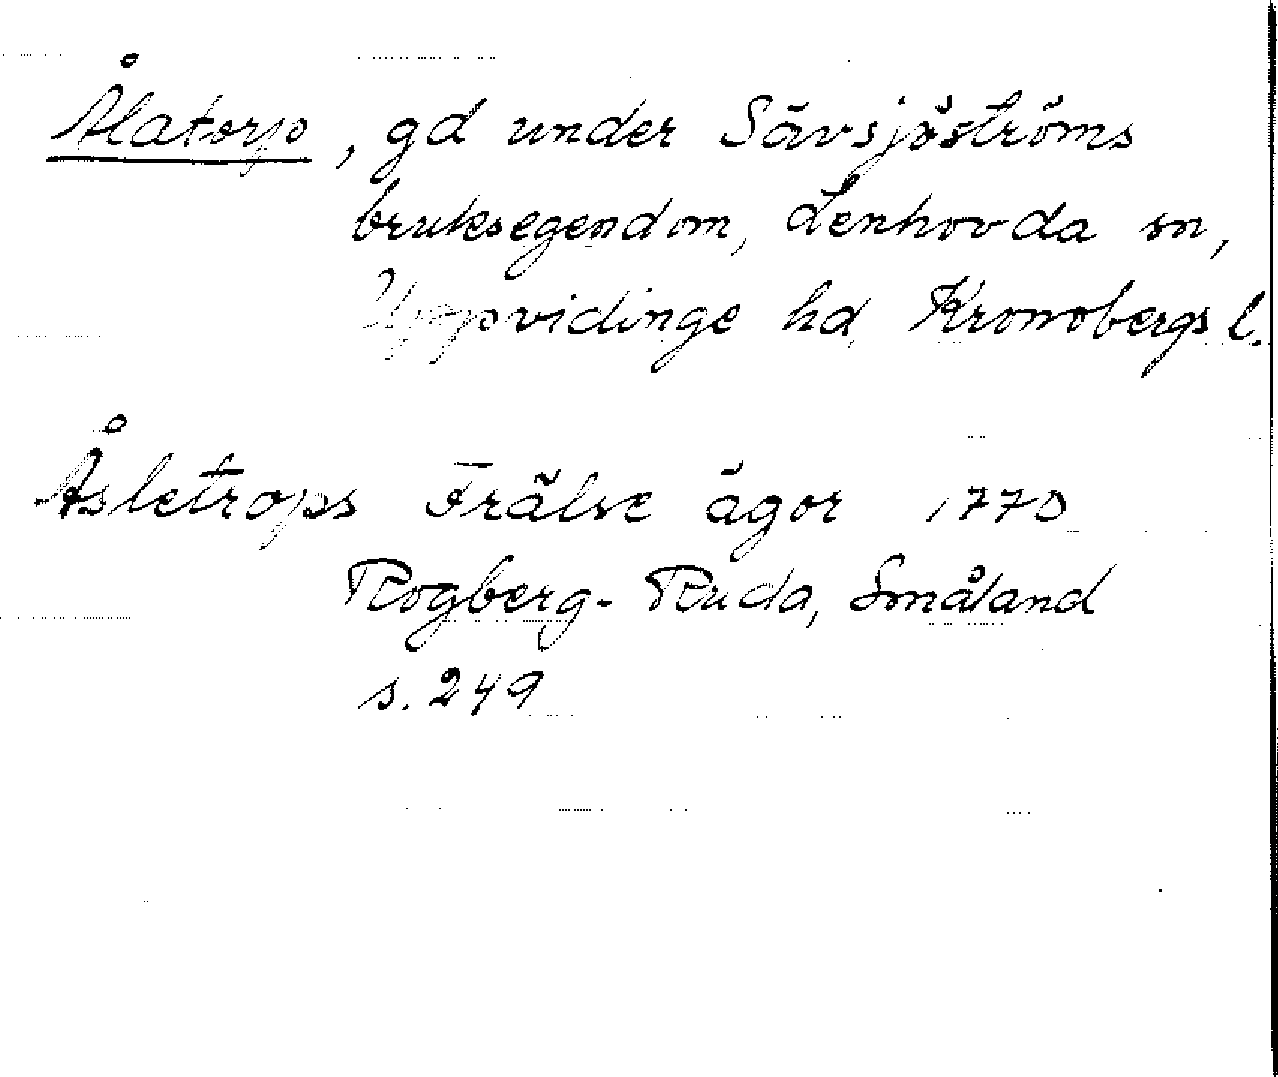 Ålatorp, gd under Sävsjöströms
bruksegendom, Lenhovda sn,
Uppvidinge hd, Kronobergs l.
Åsletrops Frälse ägor 1770
Rogberg-Ruda, Småland
s. 249